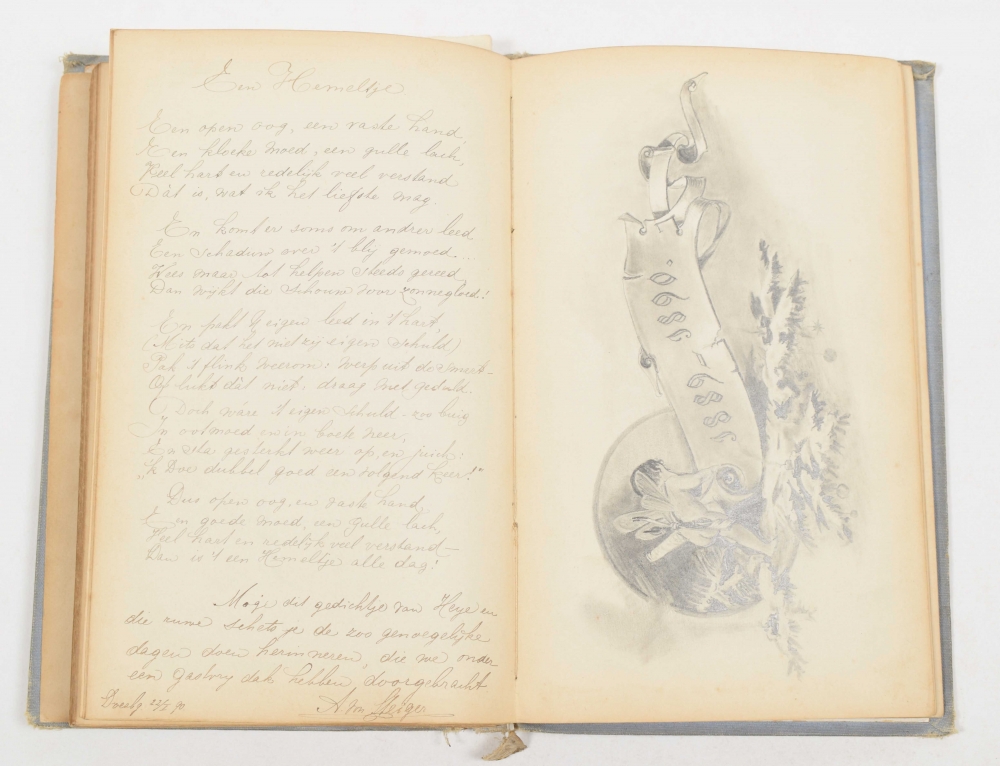 Een Hemeltje
Een open oog, een vaste hand,
Een kloeke moed, een gulle lach,
Heel hart en redelijk veel verstand
Dàt is, wat ik het liefste mag.
En komt er soms om andrer leed
Een schaduw over 't blij gemoed....
Wees maar tot helpen steeds gereed
Dan wijkt die schouw voor zonnegloed!
En pakt U eigen leed in 't hart,
(Mits dat het niet zij eigen schuld)
Pak 't flink weerom: werp uit de smart—
Of lukt dàt niet: draag met geduld.
Doch ware 't eigen schuld — zoo buig
In ootmoed en in boete neer,
En sta gesterkt weer op, en juich:
"'k Doe dubbel goed een volgend keer!"
Dus open oog, en vaste hand,
En goede moed, een gulle lach,
Heel hart en redelijk veel verstand —
Dan is 't een Hemeltje alle dag!
Moge dit gedichtje van Heije en
die ruwe schets je de zoo genoegelijke
dagen doen herinneren, die we onder
een gastvrij dak hebben doorgebracht
A von
1889 – 1890.